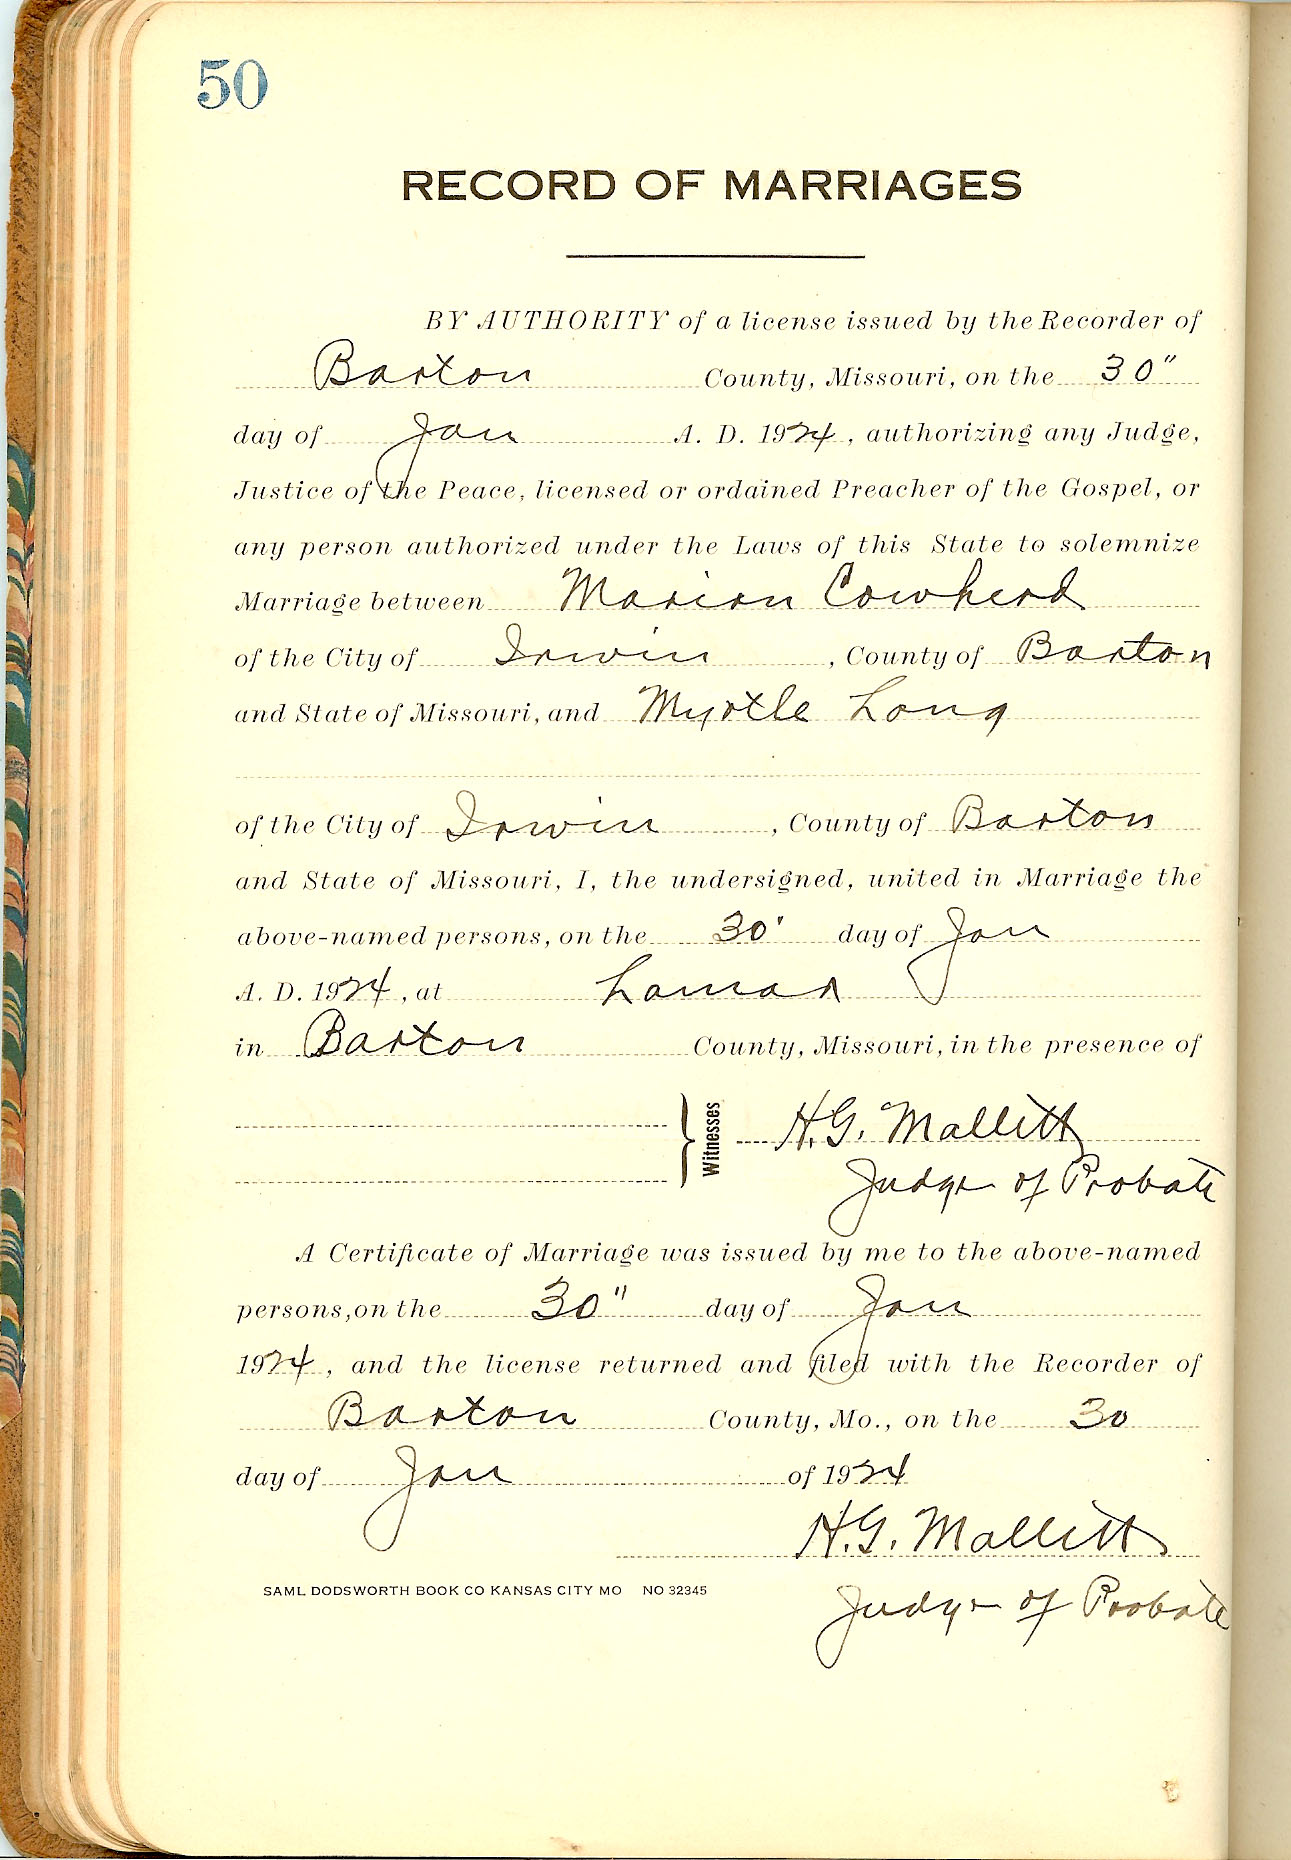 50
RECORD OF MARRIAGES
BY AUTHORITY of a license issued by the Recorder of
Barton County, Missouri, on the 30"
day of Jan A. D. 1924, authorizing any Judge,
Justice of the Peace, licensed or ordained Preacher of the Gospel, or
any person authorized under the Laws of this State to solemnize
Marriage between Marion Cowherd
of the City of Irwin, County of Barton
and State of Missouri, and Myrtle Long
of the City of Irwin, County of Barton
and State of Missouri, I, the undersigned, united in Marriage the
above-named persons, on the 30' day of Jan
A. D. 1924, at Lamar
in Barton County, Missouri, in the presence of
Witnesses H.G. Mallitt
Judge of Probate
A Certificate of Marriage was issued by me to the above-named
persons, on the 30" day of Jan
1924, and the license returned and filed with the Recorder of
Barton County, Mo., on the 30
day of Jan of 1924
H.G. Mallitt
SAML DODSWORTH BOOK CO KANSAS CITY MO NO 32345
Judge of Probate